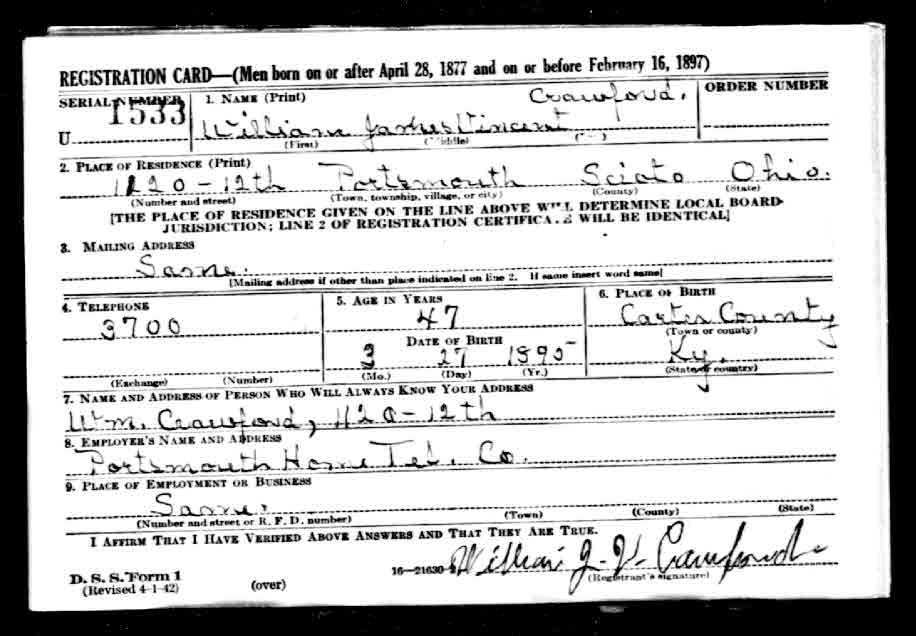 REGISTRATION CARD—(Men born on or after April 28, 1877 and on or before February 16, 1897)
SERIAL NUMBER 1. NAME (Print) Crawford. ORDER NUMBER
U 1533 William James Vincent
(First) (Middle)
2. PLACE OF RESIDENCE (Print)
1120-12th Portsmouth Scioto Ohio.
(Number and street) (Town, township, village, or city) (County) (State)
[THE PLACE OF RESIDENCE GIVEN ON THE LINE ABOVE WILL DETERMINE LOCAL BOARD
JURISDICTION; LINE 2 OF REGISTRATION CERTIFICATE WILL BE IDENTICAL]
3. MAILING ADDRESS
Same.
[Mailing address if other than place indicated on line 2. If same insert word same]
4. TELEPHONE 5. AGE IN YEARS 6. PLACE OF BIRTH
3700 47 Carter County
(Town or county)
DATE OF BIRTH
3 27 1895 Ky.
(Exchange) (Number) (Mo.) (Day) (Yr.) (State or country)
7. NAME AND ADDRESS OF PERSON WHO WILL ALWAYS KNOW YOUR ADDRESS
Wm. Crawford, 1120-12th
8. EMPLOYER'S NAME AND ADDRESS
Portsmouth Home Tel. Co.
9. PLACE OF EMPLOYMENT OR BUSINESS
Same.
(Number and street or R. F. D. number) (Town) (County) (State)
I AFFIRM THAT I HAVE VERIFIED ABOVE ANSWERS AND THAT THEY ARE TRUE.
D. S. S. Form 1 16—21630 William J. V. Crawford
(Revised 4-1-42) (over) (Registrant's signature)